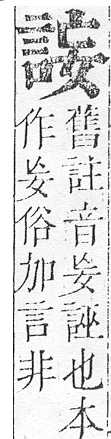 舊註音妄誣也本
作妄俗加言非